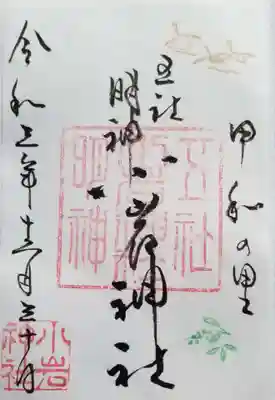 甲和の里
五社
明神
小岩神社
令和三年十二月三十日
五社
明神
小岩
神社